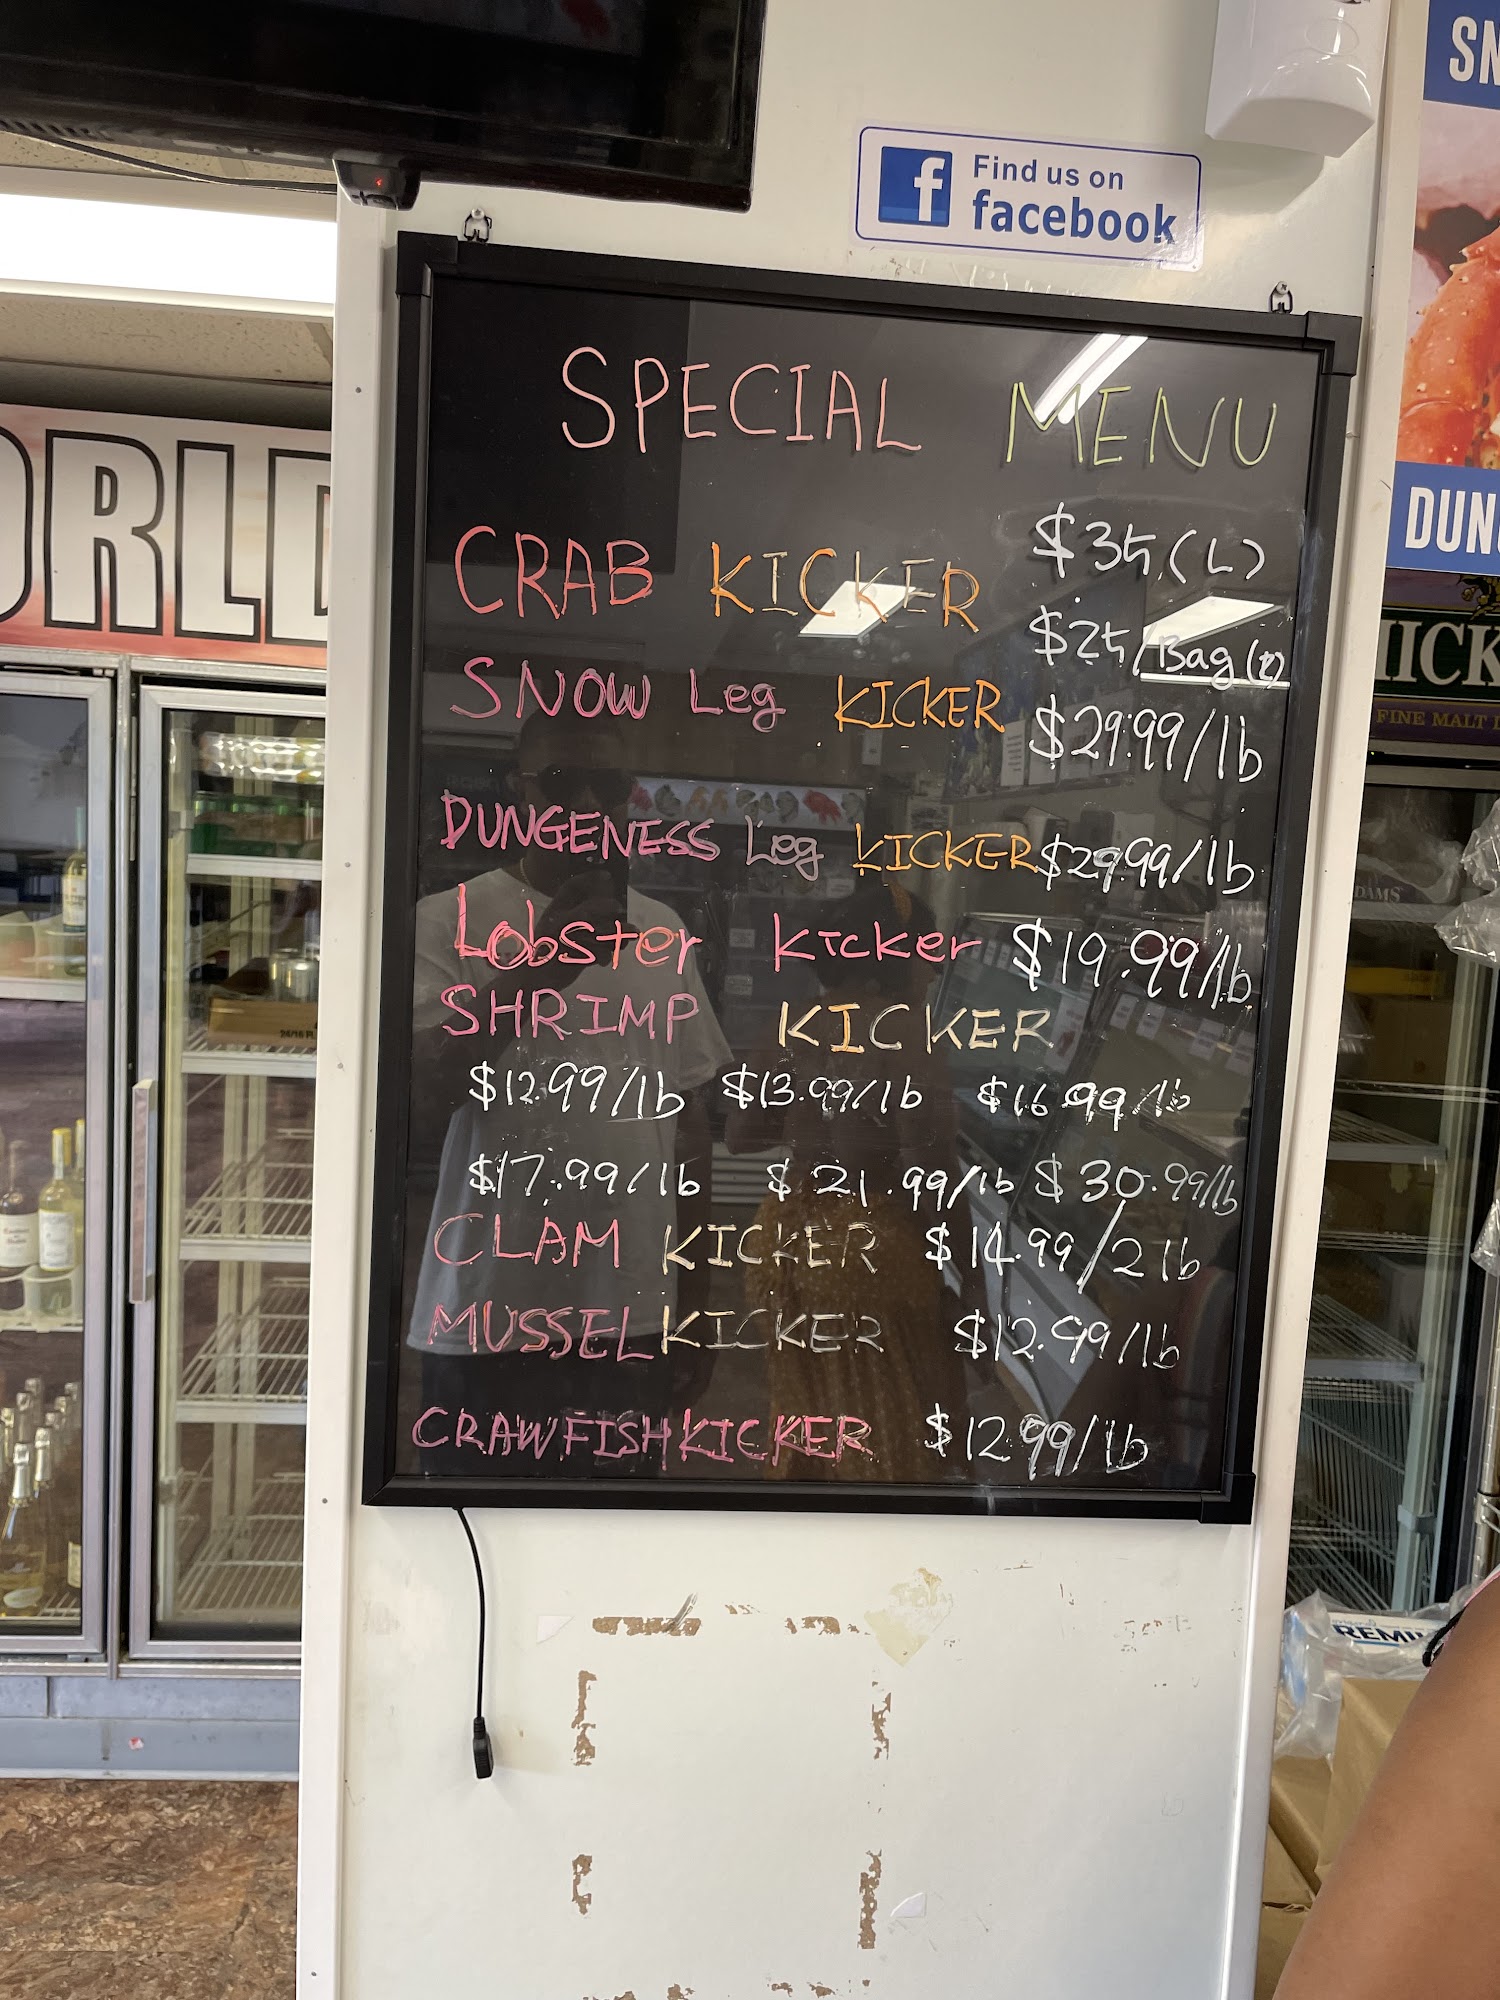 SN
Find us on
facebook
SPECIAL MENU
CRAB KICKER $35 (L)
$25/Bag
SNOW Leg KICKER $29.99/lb
DUNGENESS Leg KICKER $29.99/lb
Lobster Kicker $19.99/lb
SHRIMP KICKER
$12.99/lb $13.99/lb $16.99/lb
$17.99/lb $21.99/lb $30.99/lb
CLAM KICKER $14.99/2 lb
MUSSEL KICKER $12.99/lb
CRAWFISH KICKER $12.99/lb
ORLD
DUN
IICK
FINE MALT
DAMS
24/16
REMI